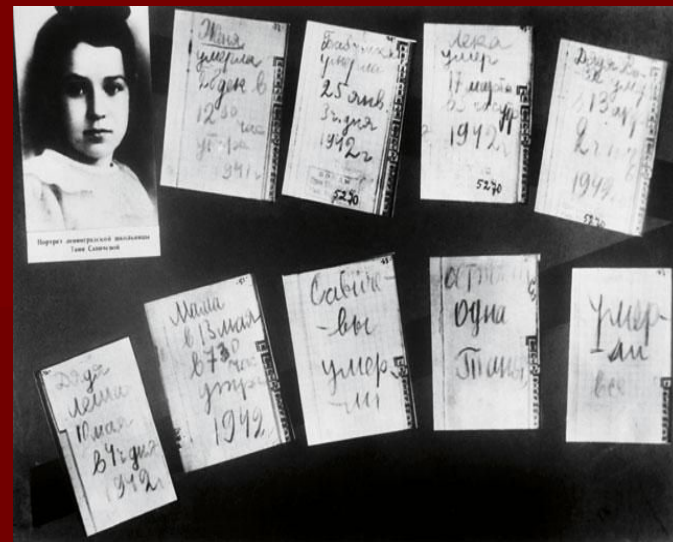 Портрет ленинградской школьницы
Тани Савичевой
Женя
умерла
28 дек в
12 30 час
утра
1941 г
Бабушка
умерла
25 янв.
3 ч. дня
1942 г
Лека
умер
17 марта
в 5 час утр
1942 г
5270
Дядя Ва-
умер
в 13 апр
2 ч ночь
1942 г
5270
Дядя
Леша
10 мая
в 4 ч дня
1942 г
Мама
в 13 мая
в 7 30 час
утра
1942 г
Савиче-
-вы
умер-
-ли
одна
Таня
умер-
-ли
все